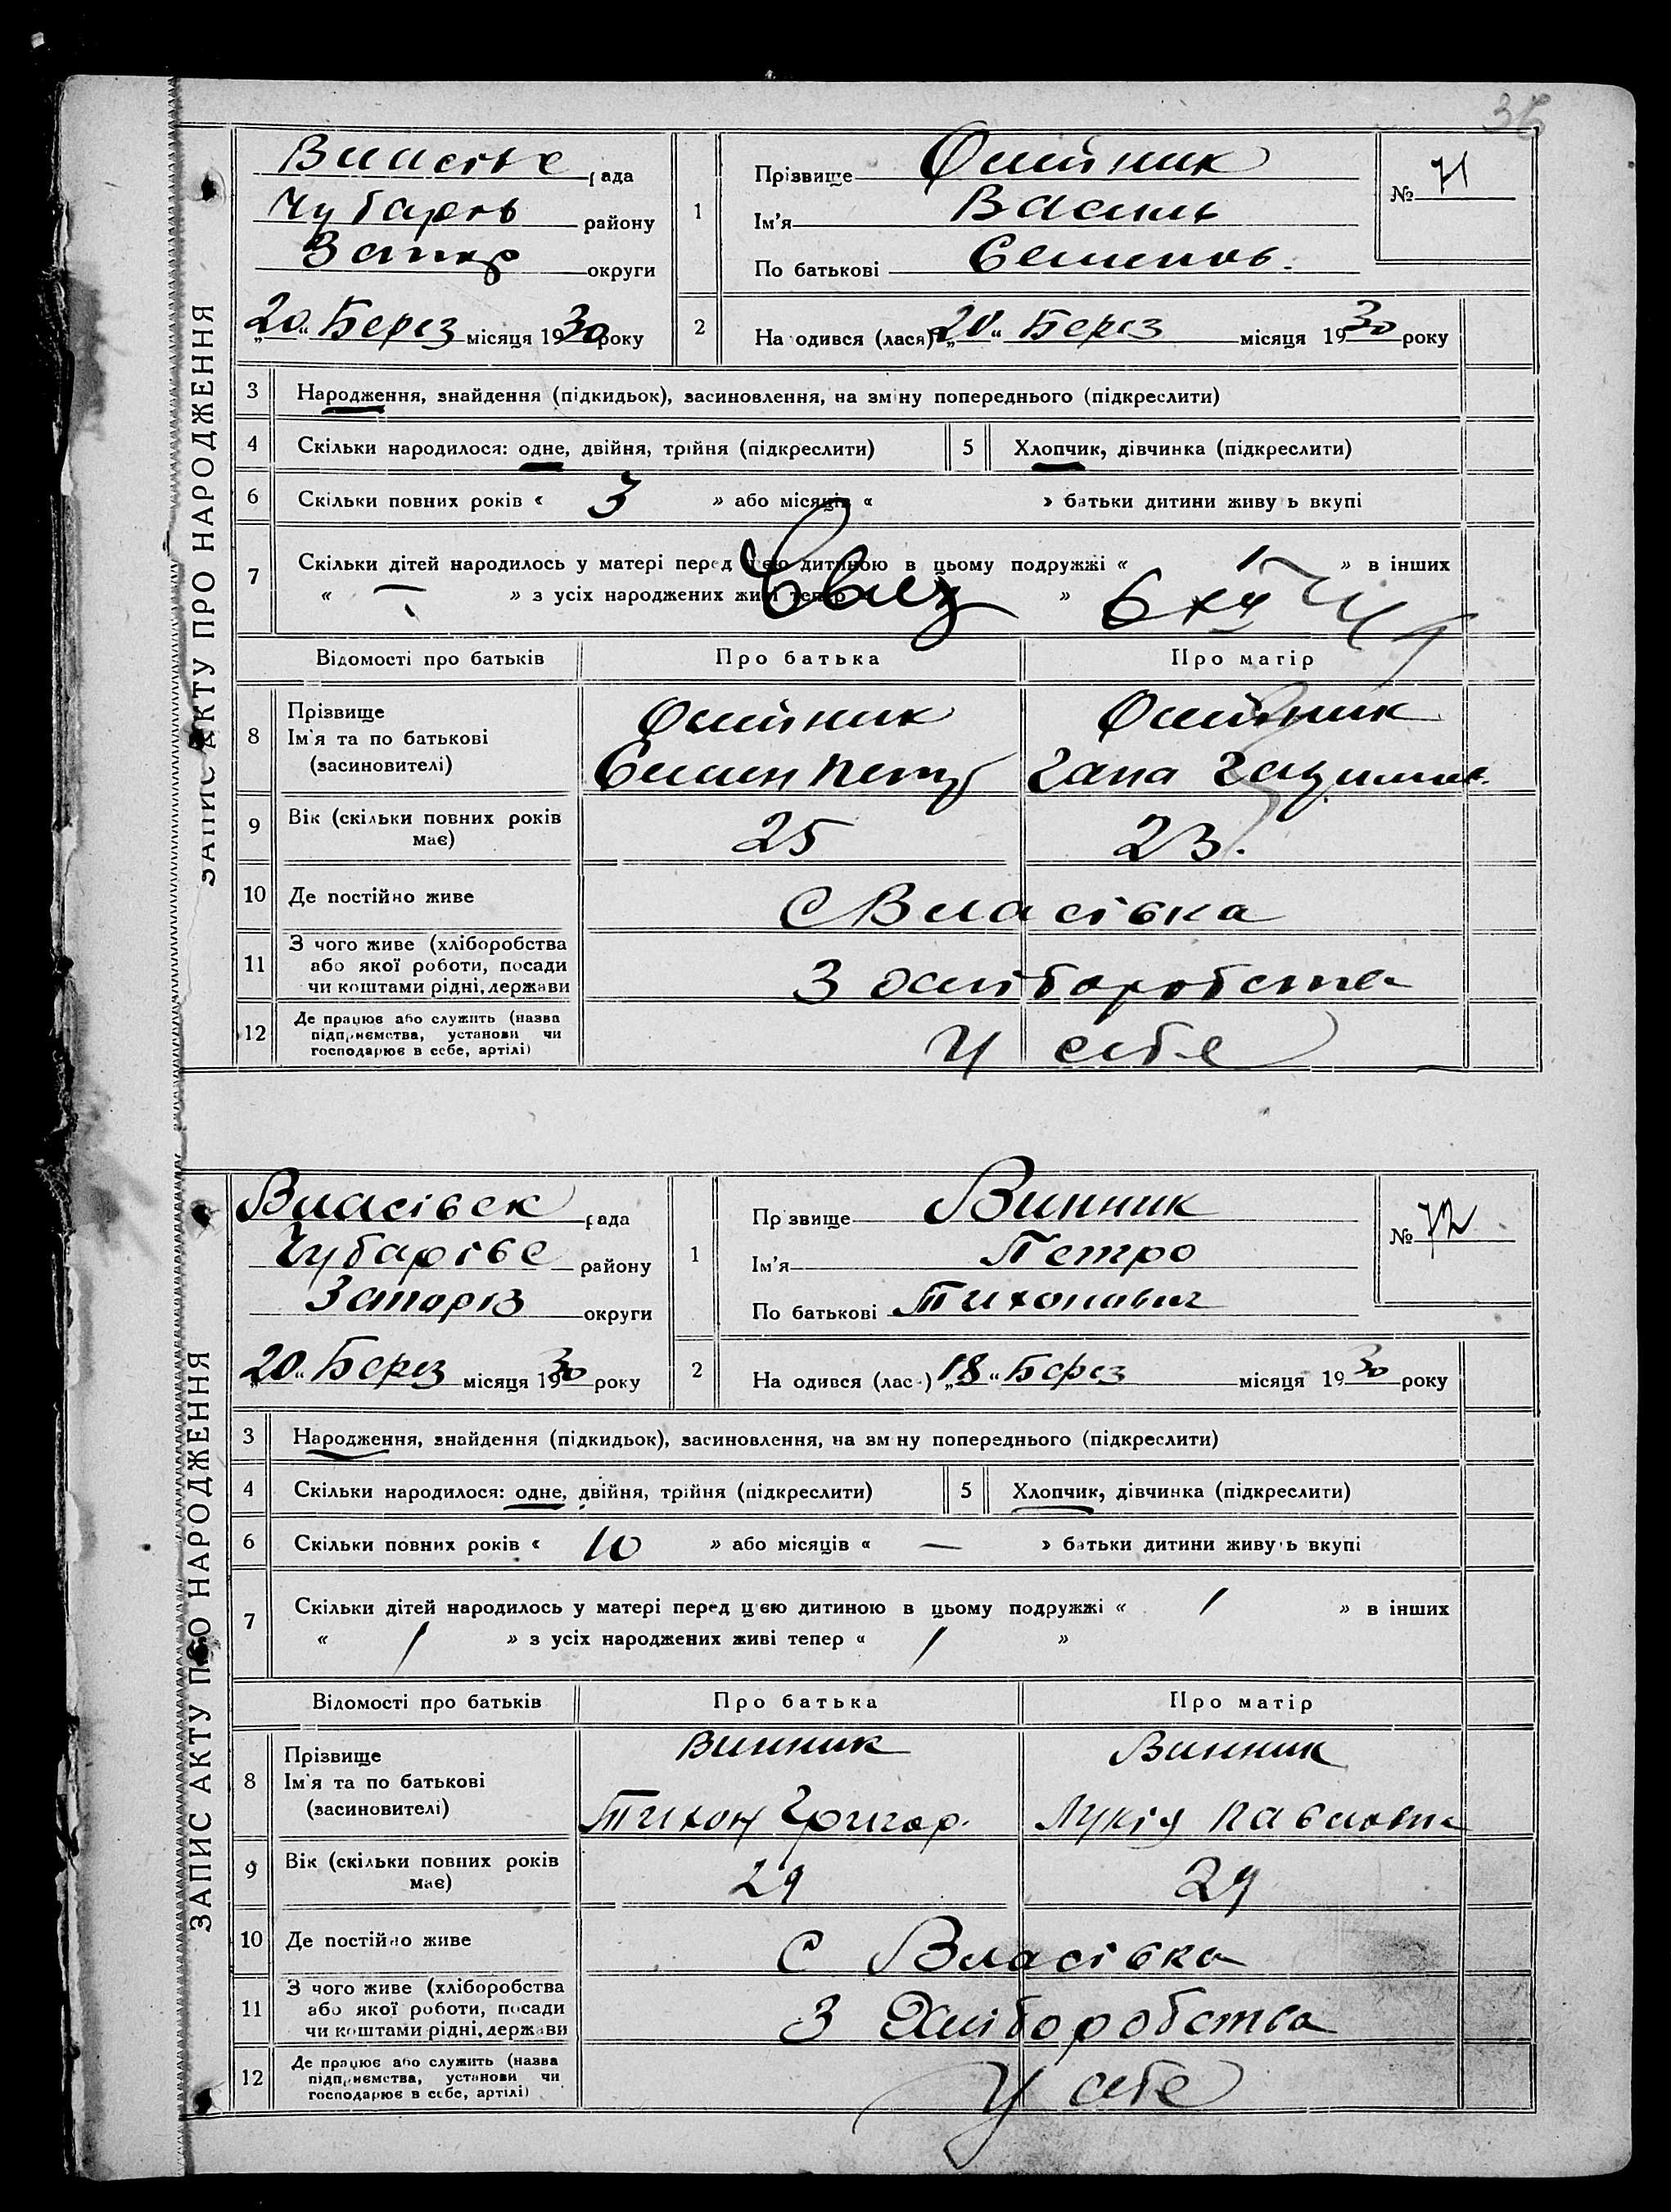 36
ЗАПИС АКТУ ПРО НАРОДЖЕННЯ
Власівс рада
Чубарів району
Запор округи
„20“ Берез місяця 1930 року
1 Прізвище Олійник
Ім'я Василь
По батькові Семенов.
№ 71
2 На одився (лася) „20“ Берез місяця 1930 року
3 Народження, знайдення (підкидьок), засиновлення, на зміну попереднього (підкреслити)
4 Скільки народилося: одне, двійня, трійня (підкреслити) 5 Хлопчик, дівчинка (підкреслити)
6 Скільки повних років « 3 » або місяців « » батьки дитини живу ь вкупі
7 Скільки дітей народилось у матері перед цією дитиною в цьому подружжі « 1 » в інших
« — » з усіх народжених живі тепер »
Відомості про батьків Про батька Про матір
8 Прізвище
Ім'я та по батькові
(засиновителі)
Олійник Олійник
Семен Петр Гана
9 Вік (скільки повних років має) 25 23.
10 Де постійно живе С Власівка
11 З чого живе (хліборобства
або якої роботи, посади
чи коштами рідні, держави
З хліборобства
12 Де працює або служить (назва
підприємства, установи чи
господарює в себе, артілі)
У себе
ЗАПИС АКТУ ПРО НАРОДЖЕННЯ
Власівск рада
Чубарівс району
Запоріз округи
„20“ Берез місяця 1930 року
1 Пр звище Винник
Ім'я Петро
По батькові Тихонович
№ 72
2 На одився (лас ) „18“ Берез місяця 1930 року
3 Народження, знайдення (підкидьок), засиновлення, на зм ну попереднього (підкреслити)
4 Скільки народилося: одне, двійня, трійня (підкреслити) 5 Хлопчик, дівчинка (підкреслити)
6 Скільки повних років « 10 » або місяців « — » батьки дитини живу ь вкупі
7 Скільки дітей народилось у матері перед цією дитиною в цьому подружжі « / » в інших
« / » з усіх народжених живі тепер « / »
Відомості про батьків Про батька Про матір
8 Прізвище
Ім'я та по батькові
(засиновителі)
Винник Винник
Тихон Григор. Лукія Павловна
9 Вік (скільки повних років має) 29 29
10 Де постійно живе С Власівка
11 З чого живе (хліборобства
або якої роботи, посади
чи коштами рідні, держави
З Хліборобства
12 Де працює або служить (назва
підприємства, установи чи
господарює в себе, артілі)
У себе